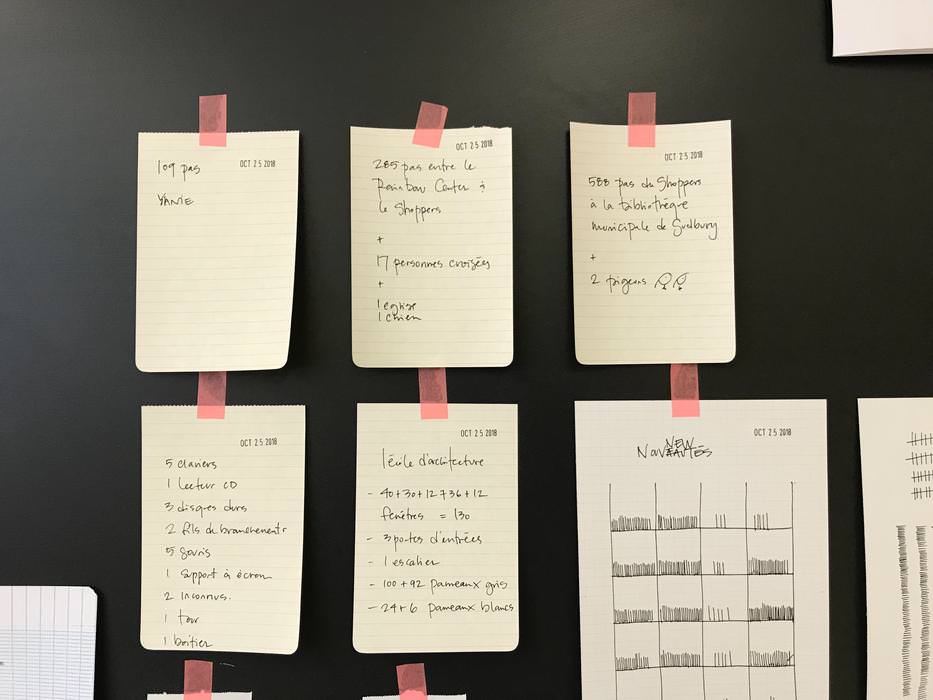 109 pas
OCT 25 2018
OCT 25 2018
285 pas entre le
Rainbow Center &
le Shoppers
+
17 personnes croisées
+
1 église
1 chien
OCT 25 2018
588 pas du Shoppers
à la bibliothèque
municipale de Sudbury
+
2 pigeons
OCT 25 2018
5 claviers
1 lecteur CD
3 disques durs
2 fils de branchements
5 souris
1 support à écran
2 inconnus.
1 tour
1 boîtier
OCT 25 2018
l'école d'architecture
- 40+30+12+36+12
fenêtres = 130
- 3 portes d'entrées
- 1 escalier
- 100+92 panneaux gris
- 24+6 panneaux blancs
OCT 25 2018
NEW
NOUVEAUTÉS